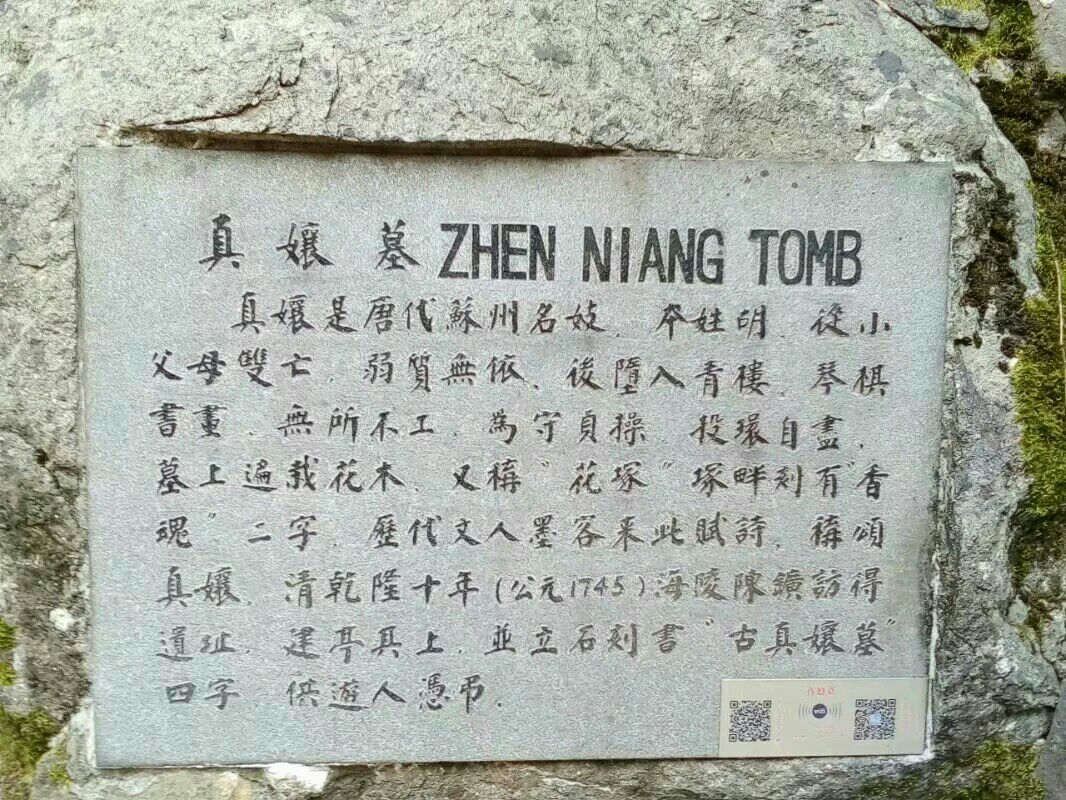 真孃墓 ZHEN NIANG TOMB
真孃是唐代蘇州名妓．本姓胡．從小
父母雙亡．弱質無依．後墮入青樓．琴棋
書畫．無所不工．為守貞操．投環自盡．
墓上遍栽花木．又稱“花塚”塚畔刻有“香
魂”二字．歷代文人墨客来此賦詩．稱頌
真孃．清乾隆十年(公元1745)海陵陳鑛訪得
遺址．建亭其上．並立石刻書“古真孃墓”
四字．供遊人憑吊．
真娘墓
wifi